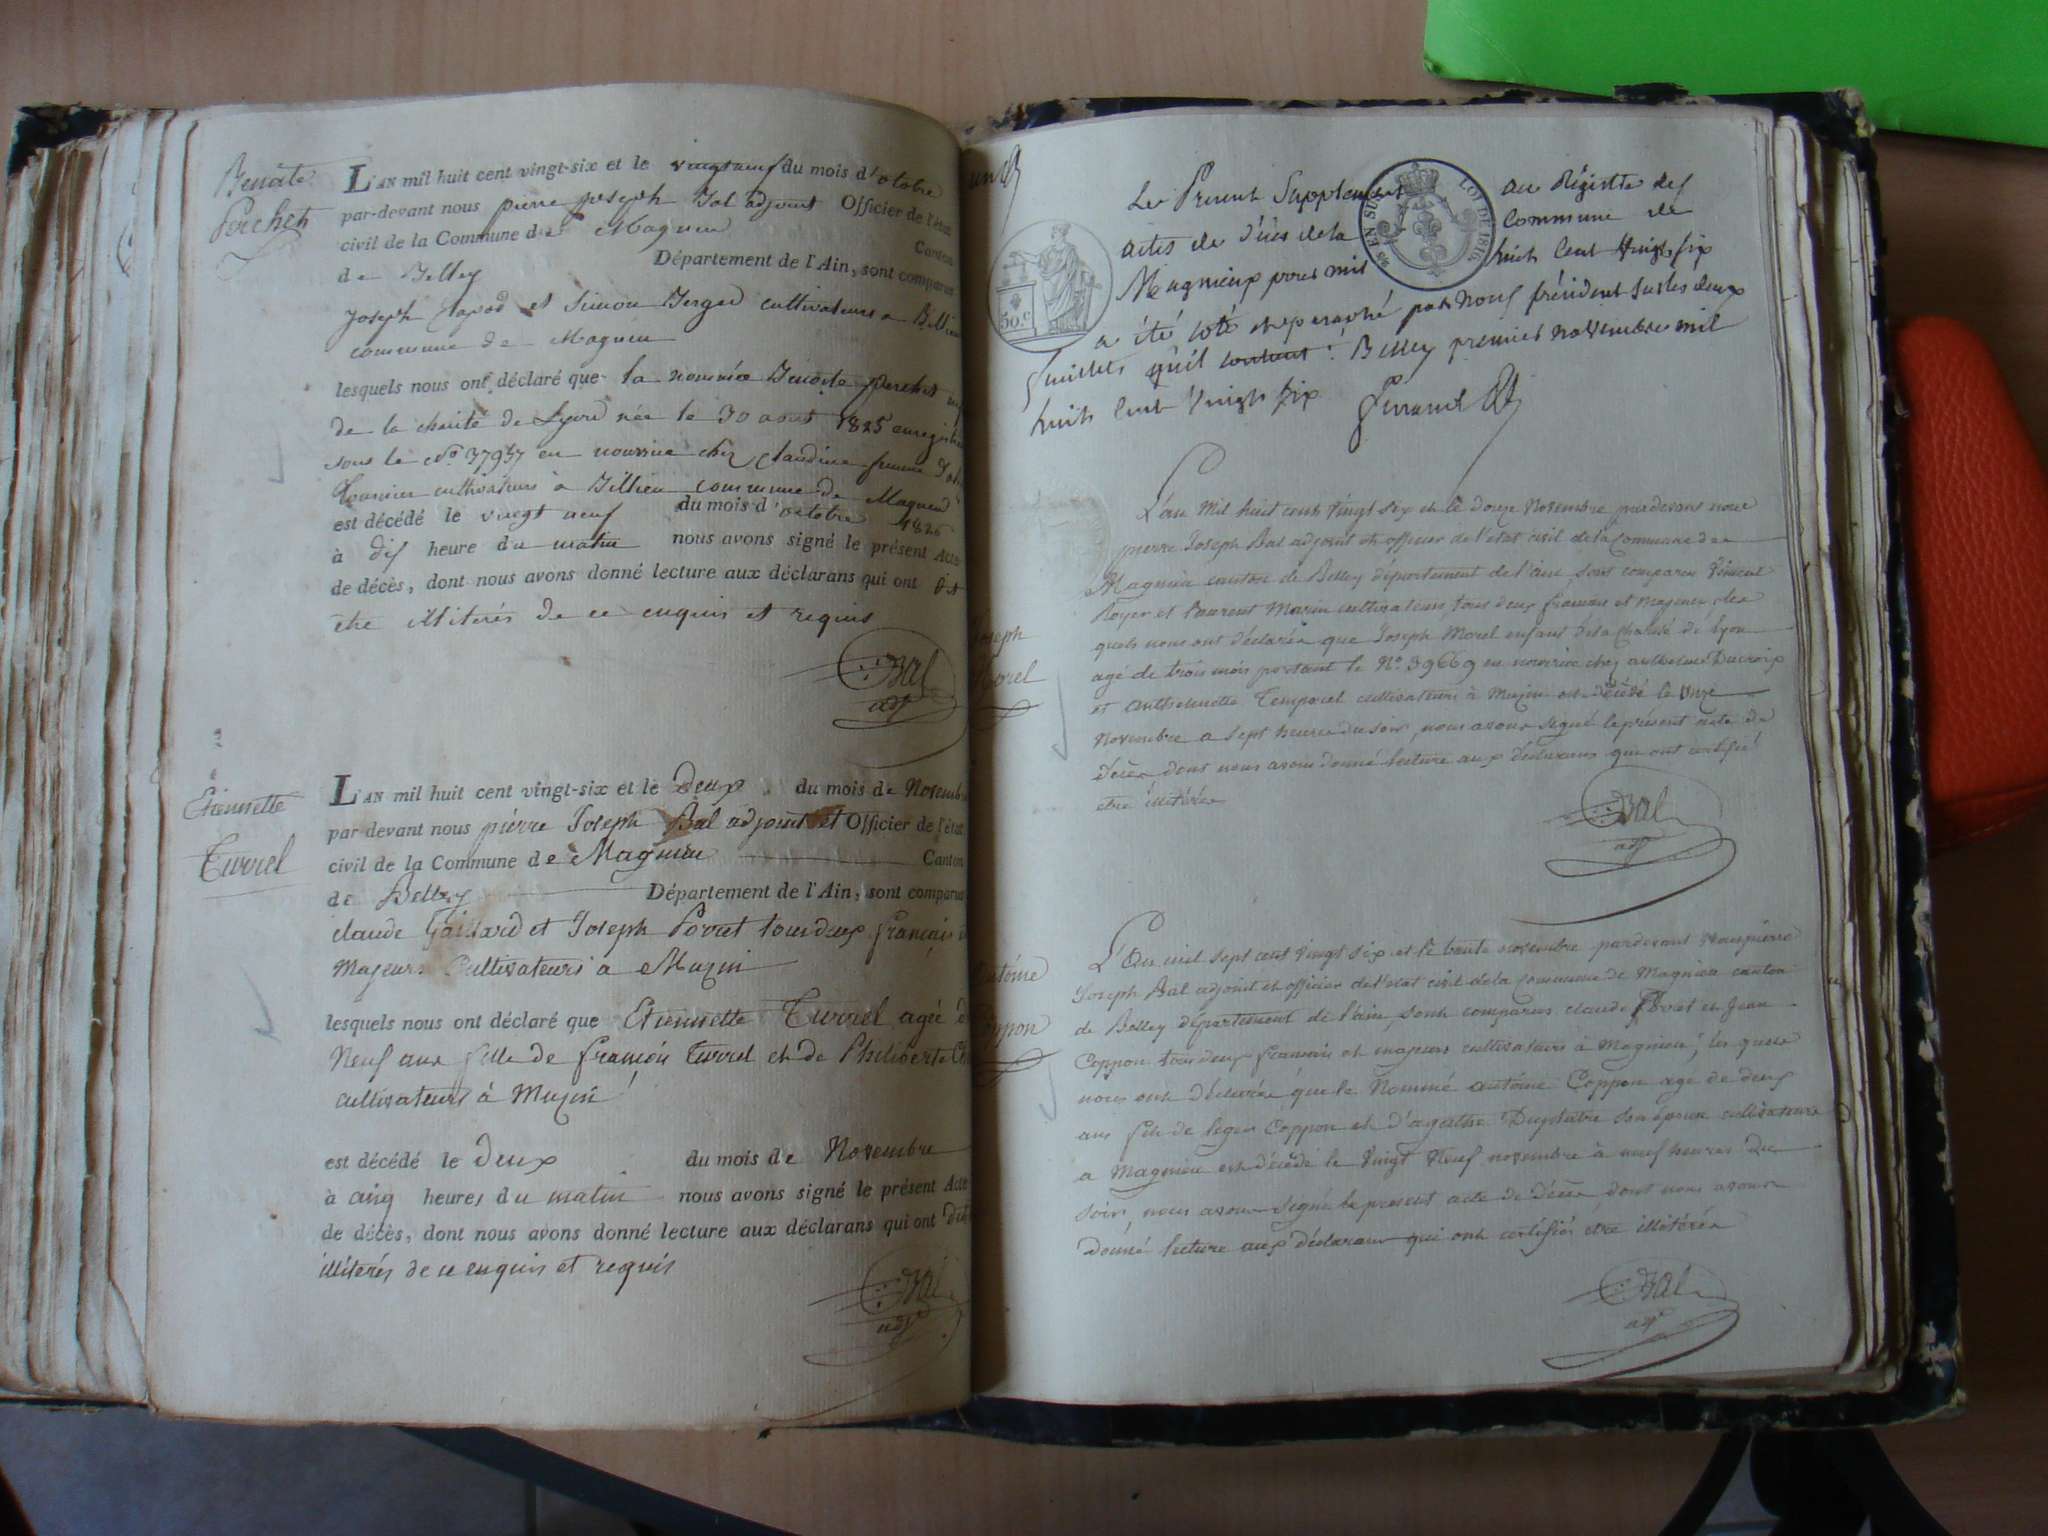 Benoite
Perchet
L'AN mil huit cent vingt-six et le vingt neuf du mois d'octobre
par-devant nous pierre joseph Bal adjoint Officier de l'état
civil de la Commune de Magnieu Canton
de Belley Département de l'Ain, sont comparus
joseph et Simon cultivateurs a
commune de Magnieu
lesquels nous ont déclaré que la nommée Benoite perchet
de la charité de Lyon née le 30 aout 1825
sous le No. 37957 en nourrice chez claudine femme
cultivateurs à Billieu commune de Magnieu
est décédé le vingt neuf du mois d'octobre 1826
à dix heure du matin nous avons signé le présent Acte
de décès, dont nous avons donné lecture aux déclarans qui ont dit
etre illiterés de ce enquis et requis
Bal
adj
Etiennette
Turrel
L'AN mil huit cent vingt-six et le Deux du mois de Novembre
par devant nous pierre Joseph Bal adjoint et Officier de l'état
civil de la Commune de Magnieu Canton
de Belley Département de l'Ain, sont comparus
claude Gaillard et Joseph Povret tous deux français
Majeurs Cultivateurs a Muzin
lesquels nous ont déclaré que Etiennette Turrel agée de
Neuf ans fille de françois Turrel et de Philiberte
cultivateurs à Muzin
est décédé le Deux du mois de Novembre
à cinq heures du matin nous avons signé le présent Acte
de décès, dont nous avons donné lecture aux déclarans qui ont dit
illiterés de ce enquis et requis
Bal
adj
Le Present Supplement au Régistre des
actes de Décès de la Commune de
Magnieux pour mil huit Cent Vingt Six
a été coté et paraphé par Nous président sur les deux
feuillets qu'il contient. Belley premier novembre mil
huit Cent Vingt Six
50.c
LOI DE 1816
Joseph
Morel
L'an Mil huit cent vingt six et le Douze Novembre pardevans nous
pierre Joseph Bal adjoint et officier de l'état civil de la Commune de
Magnieu canton de Belley département de l'ain, sont comparu Vincent
Royer et Laurent Marin cultivateurs tous deux francais et majeurs, les
quels nous ont déclarée que Joseph Morel enfant de la charité de Lyon
agé de trois mois portant le No. 39669 en nourrice chez anthelme Ducroix
et anthelmette Temporel cultivateurs à Muzin est décédé le onze
Novembre a sept heures du soir, nous avons signé le présent acte de
décès dont nous avons donné lecture aux déclarans qui ont certifié
etre illitérés
Bal
adj
Antoine
Coppon
L'an mil sept cent vingt six et le trente novembre pardevant Nous pierre
Joseph Bal adjoint et officier de l'etat civil de la commune de Magnieu canton
de Belley département de l'ain, sont comparus claude Povret et Jean
Coppon tous deux francais et majeurs cultivateurs à Magnieu; les quels
nous ont déclarée que le Nommé antoine Coppon agé de deux
ans fils de leger Coppon et d'agathe son épouse cultivateurs
a Magnieu est décédé le vingt Neuf novembre à neuf heures du
soir, nous avons signé le present acte de décès dont nous avons
donné lecture aux déclarans qui ont certifiés etre illitérés
Bal
adj